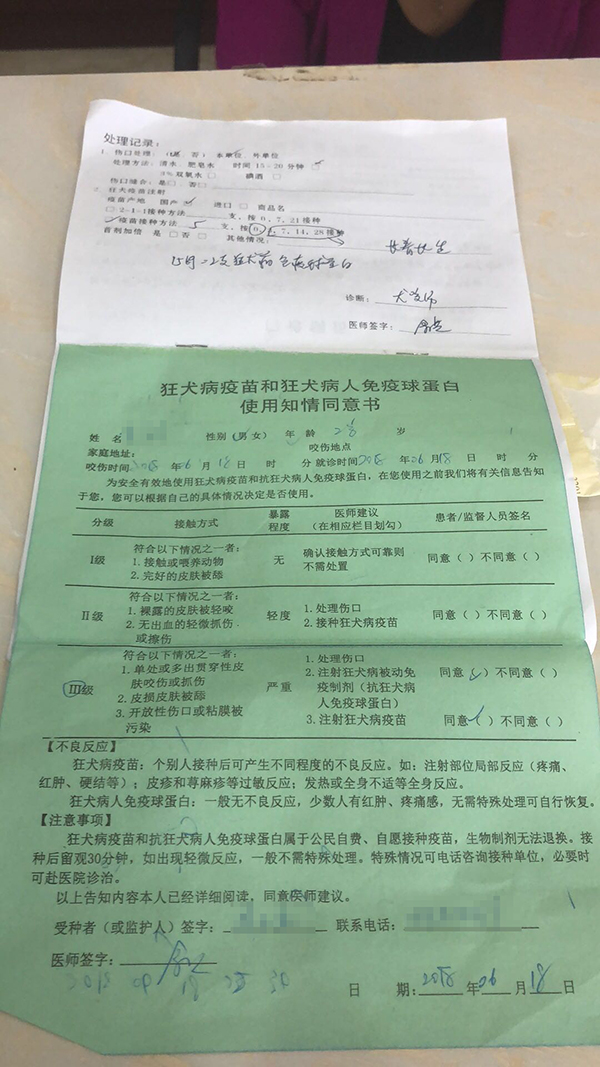 处理记录：
1. 伤口处理：（是 否）本单位 外单位
处理方法：清水 肥皂水 时间15-20分钟□
3%双氧水□ 碘酒□
伤口缝合：是□ 否□
2. 狂犬疫苗注射
疫苗产地 国产 进口□ 商品名
□2-1-1接种方法 支，按0、7、21接种
疫苗接种方法 5 支，按0、3、7、14、28接种
首剂加倍 是□ 否□ 其他情况：
长春长生
诊断：
医师签字：
狂犬病疫苗和狂犬病人免疫球蛋白
使用知情同意书
姓 名 性别（男 女） 年 龄 岁
家庭地址： 咬伤地点
咬伤时间 2018 年 06 月 18 日 时 分 就诊时间 2018 年 06 月 18 日 时 分
为安全有效地使用狂犬疫苗和抗狂犬病人免疫球蛋白，在您使用之前我们将有关信息告知
于您，您可以根据自己的具体情况决定是否使用。
分级 接触方式 暴露程度 医师建议（在相应栏目划勾） 患者/监督人员签名
I级 符合以下情况之一者：
1. 接触或喂养动物
2. 完好的皮肤被舔
无 确认接触方式可靠则
不需处置
同意（ ）不同意（ ）
II级 符合以下情况之一者：
1. 裸露的皮肤被轻咬
2. 无出血的轻微抓伤
或擦伤
轻度 1. 处理伤口
2. 接种狂犬病疫苗
同意（ ）不同意（ ）
III级 符合以下情况之一者：
1. 单处或多出贯穿性皮
肤咬伤或抓伤
2. 皮损皮肤被舔
3. 开放性伤口或粘膜被
污染
严重 1. 处理伤口
2. 注射狂犬病被动免
疫制剂（抗狂犬病
人免疫球蛋白）
3. 注射狂犬病疫苗
同意（✓）不同意（ ）
同意（✓）不同意（ ）
【不良反应】
狂犬病疫苗：个别人接种后可产生不同程度的不良反应。如：注射部位局部反应（疼痛、
红肿、硬结等）；皮疹和荨麻疹等过敏反应；发热或全身不适等全身反应。
狂犬病人免疫球蛋白：一般无不良反应，少数人有红肿、疼痛感，无需特殊处理可自行恢复。
【注意事项】
狂犬病疫苗和抗狂犬病人免疫球蛋白属于公民自费、自愿接种疫苗，生物制剂无法退换。接
种后留观30分钟，如出现轻微反应，一般不需特殊处理。特殊情况可电话咨询接种单位，必要时
可赴医院诊治。
以上告知内容本人已经详细阅读，同意医师建议。
受种者（或监护人）签字： 联系电话：
医师签字：
日 期：2018 年 06 月 18 日